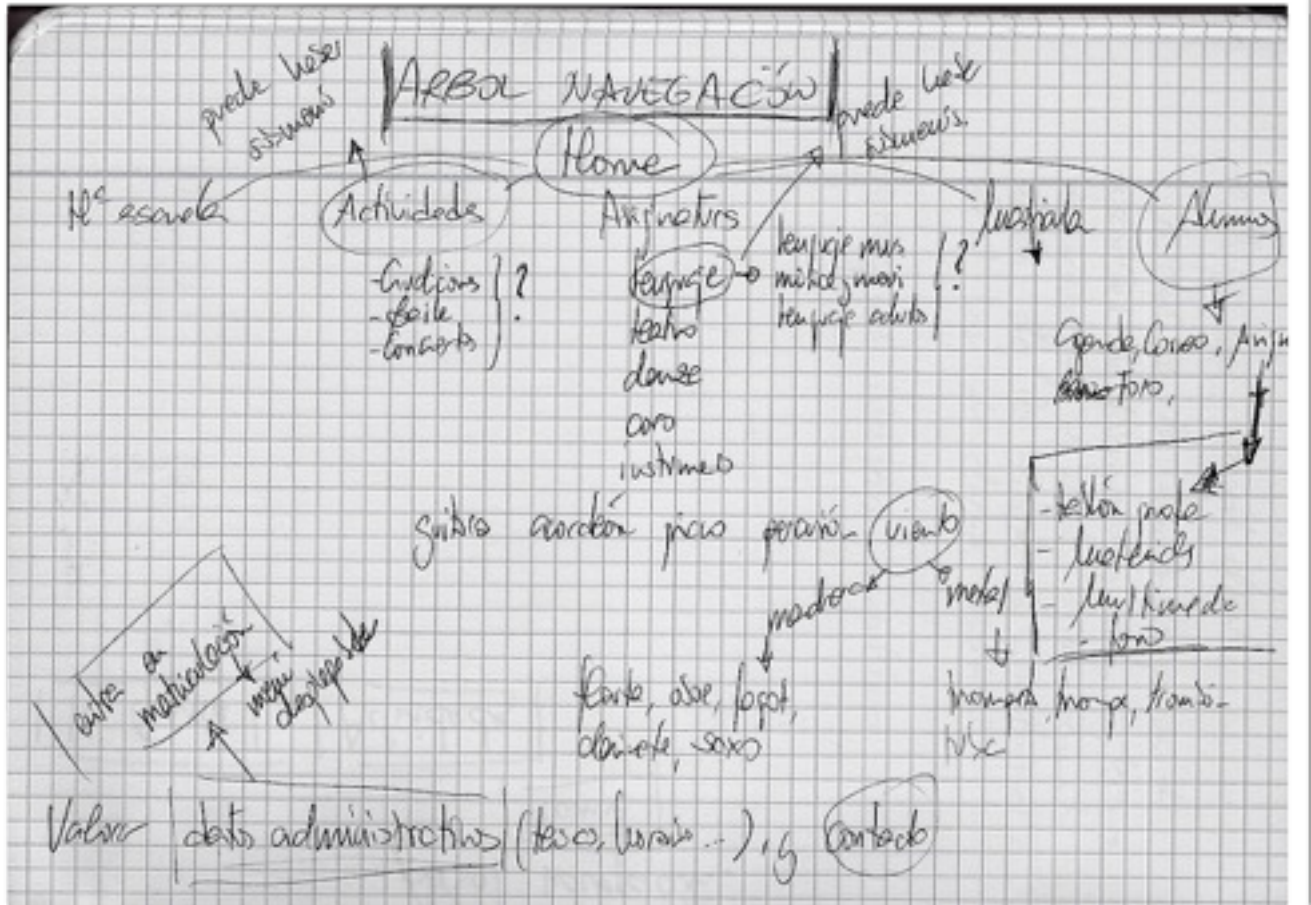 ARBOL NAVEGACIÓN
puede haber
puede haber
Home
Hª escuela
Actividades
Asignaturas
Matrícula
Alumnos
- Audicions
- Baile
- Conciertos
?
lenguaje
teatro
danza
coro
instrumeo
lenguaje mus
lenguaje adulto
?
Agenda, Correo,
Foro,
- materials
- Multimedia
- foro
guitarra acordeón piano percusión viento
madera
metal
flauta, oboe, fagot,
clarinete, saxo
trompeta, trompa, trombón
entra en
matriculación
menú
desplegable
Valorar datos administrativos (tasas, horario...), y Contacto